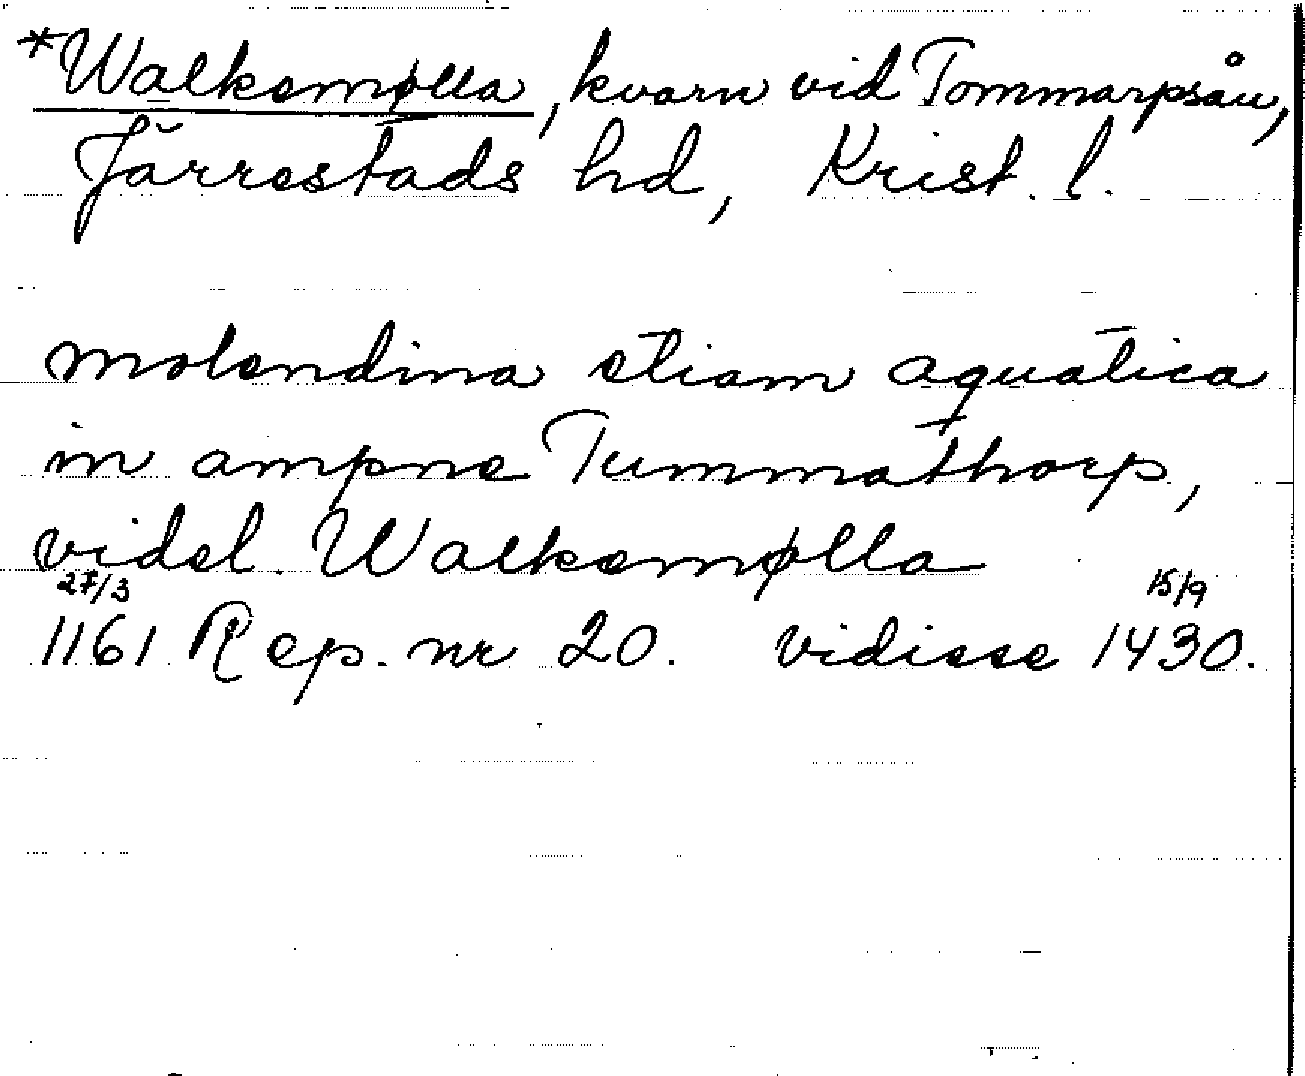 *Walkemølla, kvarn vid Tommarpsån,
Järrestads hd, Krist. l.
molendina etiam aquatica
in ampne Tummathorp,
videl. Walkemølla
27/3 15/9
1161 Rep. nr 20. vidisse 1430.